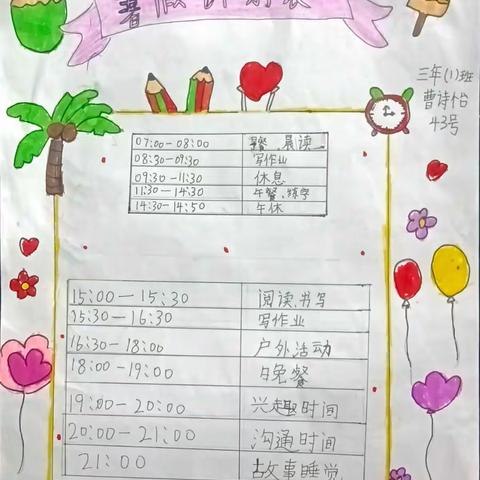 暑假计划表
三年(1)班
曹诗怡
43号
07:00-08:00 早餐、晨读
08:30-09:30 写作业
09:30-11:30 休息
11:30-14:30 午餐、练字
14:30-14:50 午休
15:00-15:30 阅读书写
15:30-16:30 写作业
16:30-18:00 户外活动
18:00-19:00 晚餐
19:00-20:00 兴趣时间
20:00-21:00 沟通时间
21:00 故事睡觉